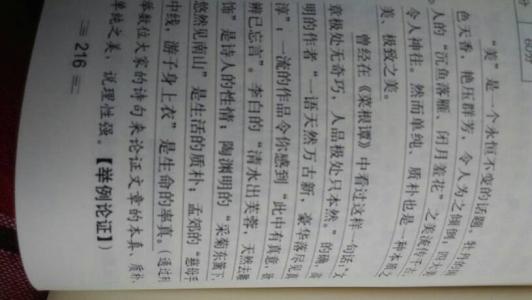 “美”是一个永恒不变的话题。牡丹的国
色天香，艳压群芳，令人为之倾倒，四大美
人的“沉鱼落雁、闭月羞花”之美流传千古，
令人神往。然而单纯、质朴也是一种本真之
美、极致之美。
曾经在《菜根谭》中看过这样一句话：“文
章极处无奇巧，人品极处只本然。”的确，
明的作者“一语天然万古新，豪华落尽见真
淳”，一流的作品令你感到“此中有真意，欲
辨已忘言”。李白的“清水出芙蓉，天然去雕
饰”是诗人的性情；陶渊明的“采菊东篱下，
悠然见南山”是生活的质朴；孟郊的“慈母手
中线，游子身上衣”是生命的率真。（通过列
举数位大家的诗句来论证文章的本真、质朴、
单纯之美，说理性强。【举例论证】）
216